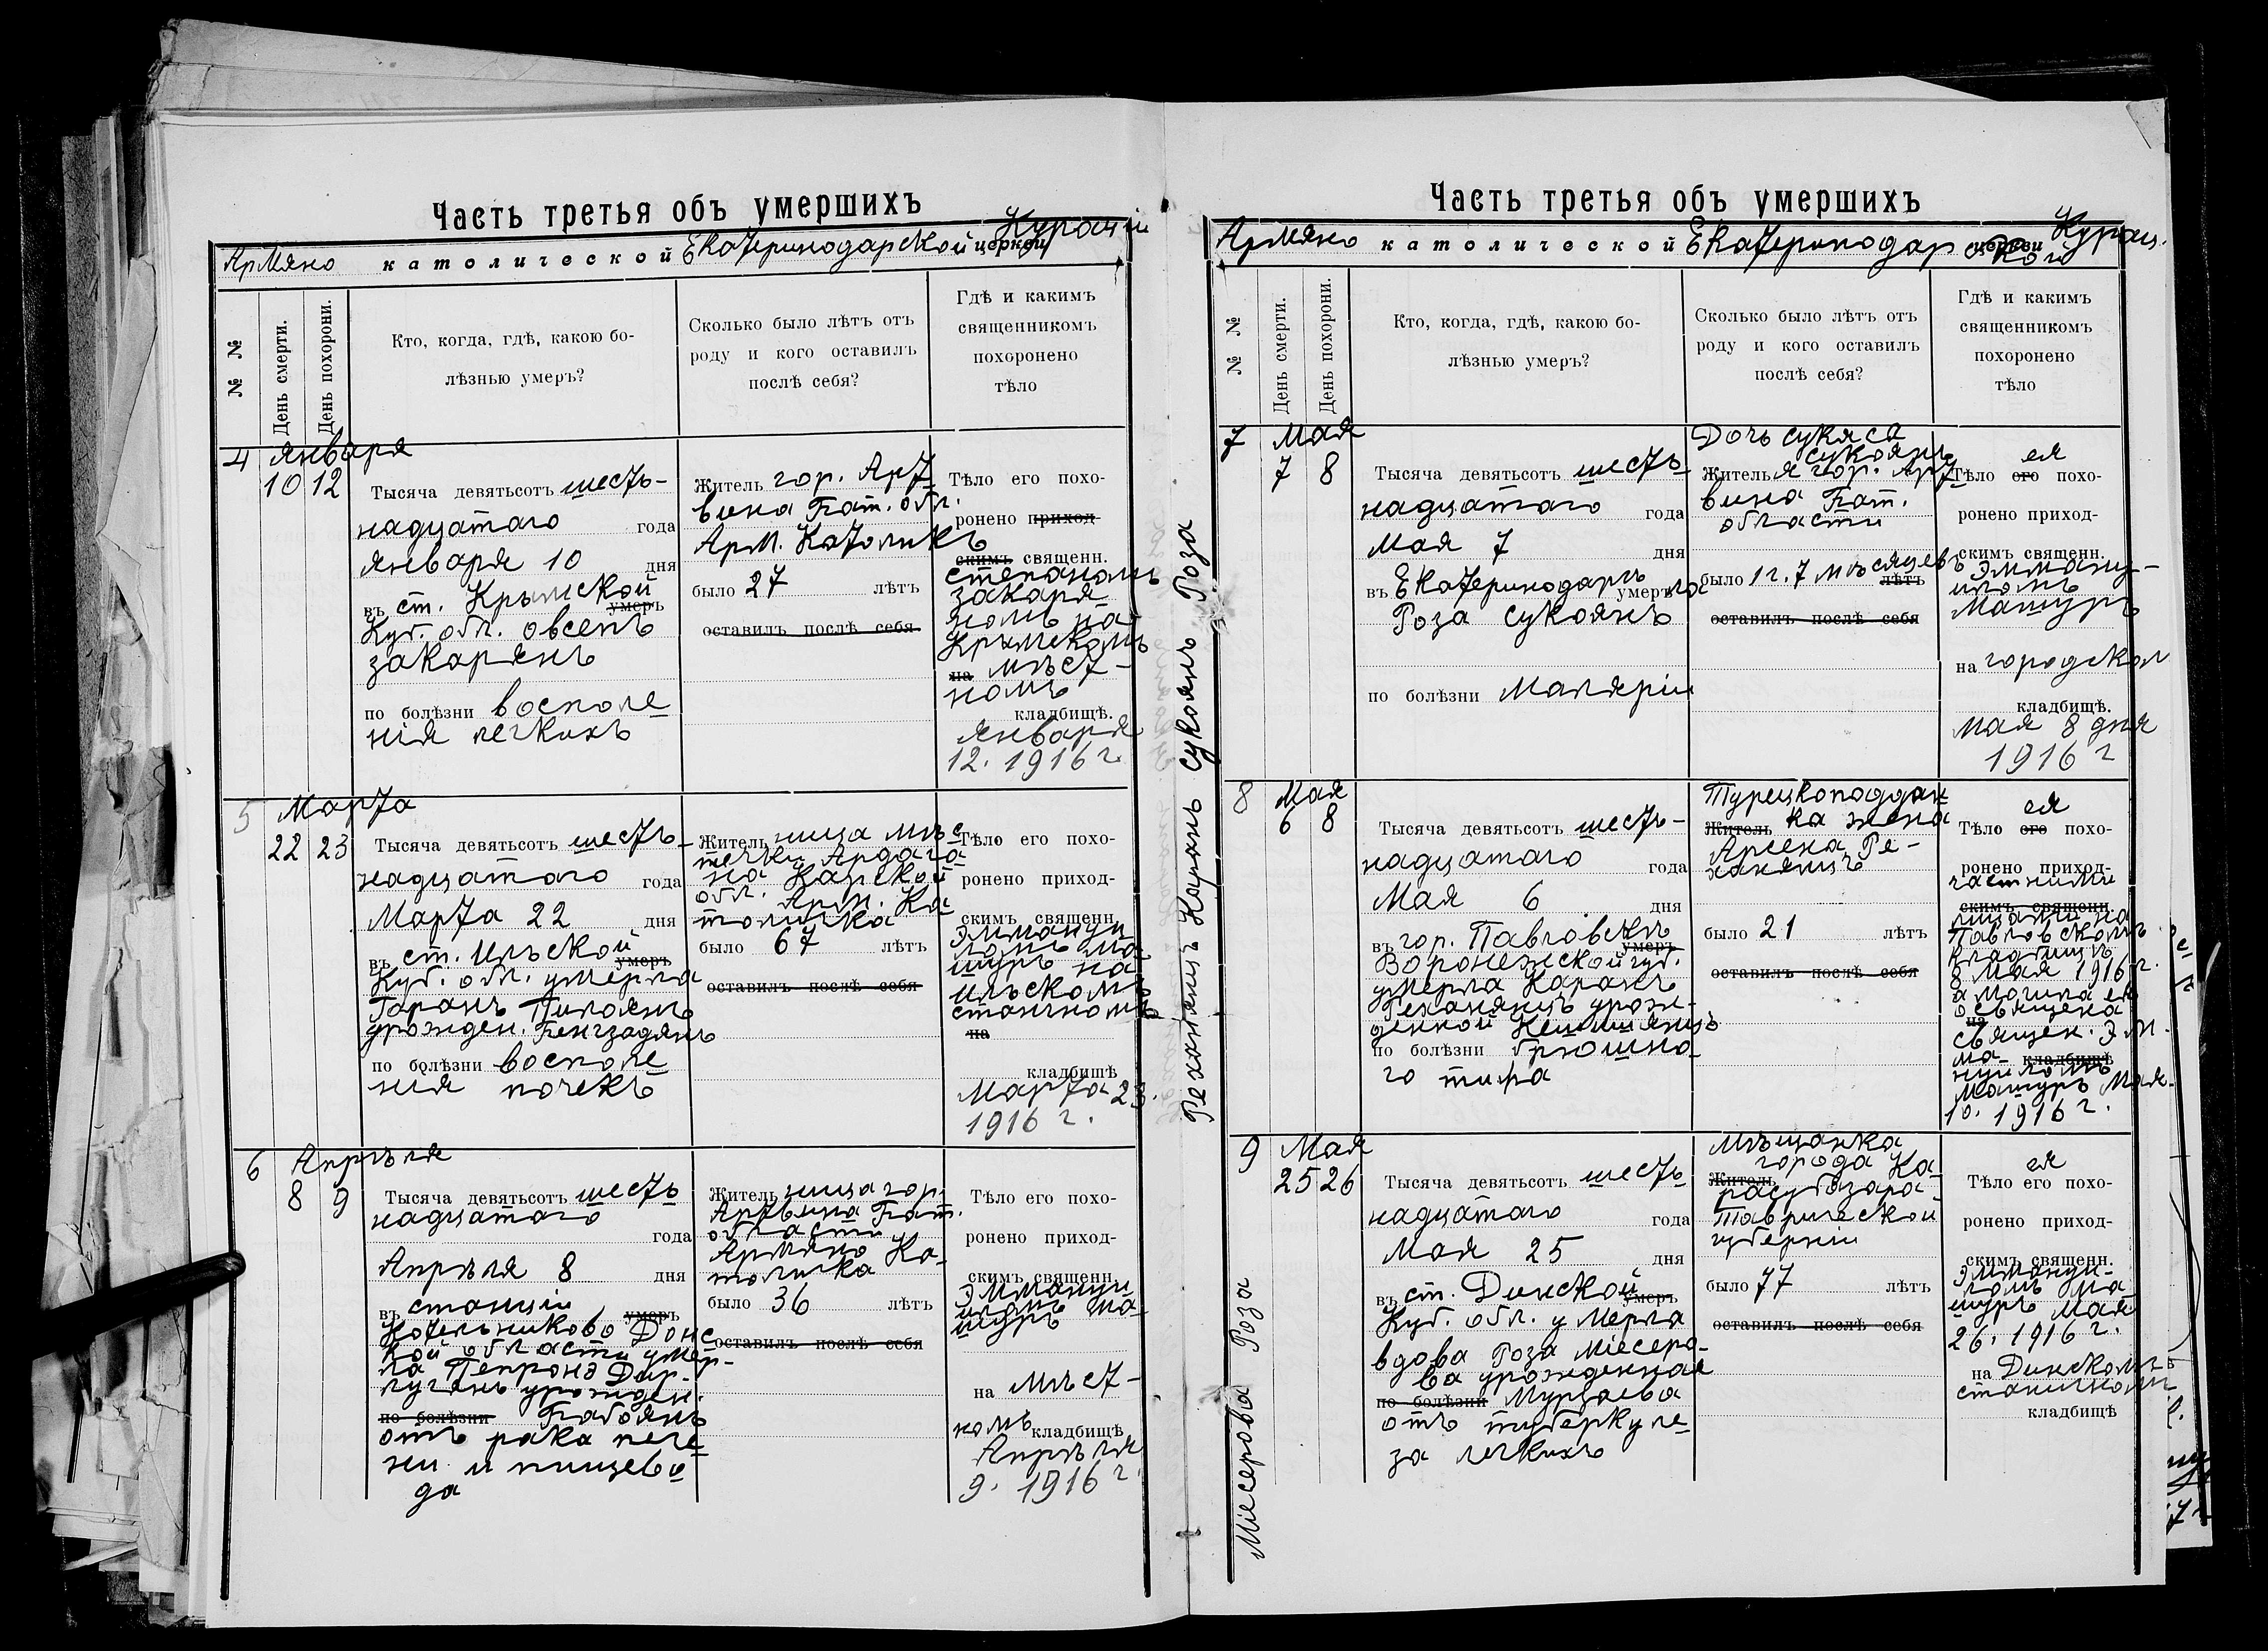 Часть третья объ умершихъ
Армяно католической Екатеринодарской церкви Курація
№ №
День смерти.
День похорони.
Кто, когда, гдѣ, какою бо-
лѣзнью умеръ?
Сколько было лѣтъ отъ
роду и кого оставилъ
послѣ себя?
Гдѣ и какимъ
священникомъ
похоронено
тѣло
4 Января
10 12
Тысяча девятьсотъ шесть-
надцатаго года
Января 10 дня
въ ст. Крымской умеръ
Куб. обл. Овсепъ
Закарянъ
по болѣзни восполе
нія легкихъ
Житель гор. Арт
вина Бат. обл.
Арм. Католикъ
было 27 лѣтъ
оставилъ послѣ себя
Тѣло его похо-
ронено приход-
скимъ священ.
Степаномъ
Закаря
номъ на
Крымскомъ
на мѣст-
номъ
кладбищѣ.
Января
12. 1916 г.
5 Марта
22 23
Тысяча девятьсотъ шесть-
надцатаго года
Марта 22 дня
въ ст. Ильской умеръ
Куб. обл. умерла
Пилоянъ
урожден.
по болѣзни восполе
нія почекъ
Жительница мѣс
течки Ардага
на Карской
обл. Арм. Ка
толичка
было 67 лѣтъ
оставилъ послѣ себя
Тѣло его похо-
ронено приход-
скимъ священ.
Эммануи
ломъ Ма
шуръ на
Ильскомъ
станичномъ
на
кладбищѣ
Марта 23.
1916 г.
6 Апрѣля
8 9
Тысяча девятьсотъ шесть
надцатаго
года
Апрѣля 8 дня
въ станціи умеръ
Котельниково Донс
кой области умер-
ла
урожден.
по болѣзни Бабоянъ
отъ рака пече
ни и пищево
да
Жительница гор.
Артвина Бат.
области
Армяно Ка-
толичка
было 36 лѣтъ
оставилъ послѣ себя
Тѣло его похо-
ронено приход-
скимъ священ.
Эммануи
ломъ Ма
шуръ
на мѣст-
номъ кладбищѣ
Апрѣля
9. 1916 г.
Реханянцъ Нараңъ Сукоянъ Роза
Часть третья объ умершихъ
Армяно католической Екатеринодарской церкви Курац.
№ №
День смерти.
День похорони.
Кто, когда, гдѣ, какою бо-
лѣзнью умеръ?
Сколько было лѣтъ отъ
роду и кого оставилъ
послѣ себя?
Гдѣ и какимъ
священникомъ
похоронено
тѣло
7 Мая
7 8
Тысяча девятьсотъ шесть-
надцатаго года
Мая 7 дня
въ Екатеринодарѣ умерла
Роза Сукоянъ
по болѣзни Маляріи
Дочь Сукяса
Сукоянъ
Жителя гор. Арт
вина Бат.
области
было 1 г. 7 мѣсяцевъ лѣтъ
оставилъ послѣ себя
ея
Тѣло его похо-
ронено приход-
скимъ священ.
Эммануи-
ломъ
Машуръ
на городском
кладбищѣ.
Мая 8 дня
1916 г
8 Мая
6 8
Тысяча девятьсотъ шесть-
надцатаго года
Мая 6 дня
въ гор. Павловскъ умеръ
Воронежской губ.
умерла
Реханянцъ урож-
денной
по болѣзни брюшно-
го тифа
Турецкоподдан
Житель ка жена
Арсена Ре-
ханянцъ
было 21 лѣтъ
оставилъ послѣ себя
ея
Тѣло его похо-
ронено приход-
частними
скимъ священ.
лицами на
Павловскомъ
кладбищѣ
8 Мая 1916 г.
а могила ея
освящена
на
священ. Эм-
ма- кладбищѣ
нуиломъ
Машуръ Мая
10. 1916 г.
9 Мая
25 26
Тысяча девятьсотъ шесть
надцатаго года
Мая 25 дня
въ ст. Динской умеръ
Куб. обл. умерла
вдова Роза Міесеро-
ва урожденная
по болѣзни Мурзаева
отъ туберкуле
за легкихъ
Мѣщанка
города Ка-
Житель
расубазара-
Таврической
губерніи
было 77 лѣтъ
оставилъ послѣ себя
ея
Тѣло его похо-
ронено приход-
скимъ священ.
Эммануи-
ломъ Ма
шуръ Мая
26. 1916 г.
на Динскомъ
станичномъ
кладбищѣ
Міесерова Роза